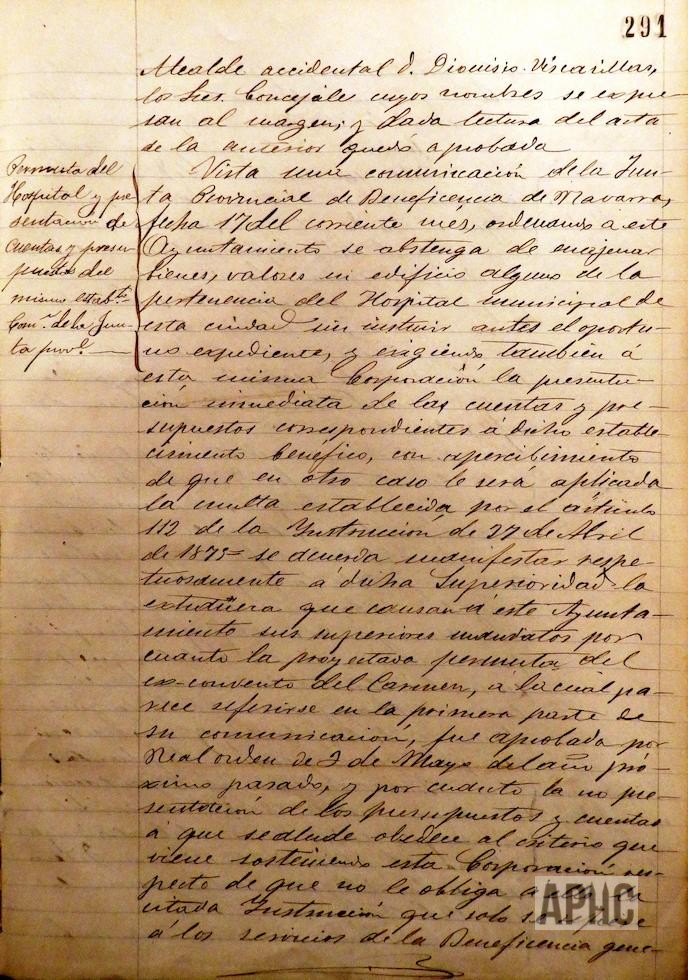 291
Alcalde accidental D. Dionisio Viscarillas,
los Sres. Concejales cuyos nombres se expre-
san al margen; y dada lectura del acta
de la anterior quedó aprobada
Permuta del
Hospital y pre
sentación de
cuentas y presu
puestos del
mismo estabto
Comn. de la Jun-
ta provl.
Vista una comunicación de la Jun-
ta Provincial de Beneficencia de Navarra,
fecha 17 del corriente mes, ordenando a este
Ayuntamiento se abstenga de enajenar
bienes, valores ni edificio alguno de la
pertenencia del Hospital municipal de
esta ciudad sin instruir antes el oportu-
no expediente, y exigiendo también á
esta misma Corporación la presenta-
ción inmediata de las cuentas y pre-
supuestos correspondientes á dicho estable-
cimiento benéfico, con apercibimiento
de que en otro caso le será aplicada
la multa establecida por el artículo
112 de la Instrucción de 27 de Abril
de 1875= se acuerda manifestar respe-
tuosamente á dicha Superioridad la
extrañeza que causan á este Ayunta-
miento sus superiores mandatos por
cuanto la proyectada permuta del
ex-convento del Carmen, á la cual pa-
rece referirse en la primera parte de
su comunicación, fue aprobada por
Real orden de 2 de Mayo del año pró-
ximo pasado, y por cuanto la no pre-
sentación de los presupuestos y cuentas
á que se alude obedece al criterio que
viene sosteniendo esta Corporación res-
pecto de que no le obliga a
citada Instrucción que solo se
á los servicios de la Beneficencia gene-
APHC